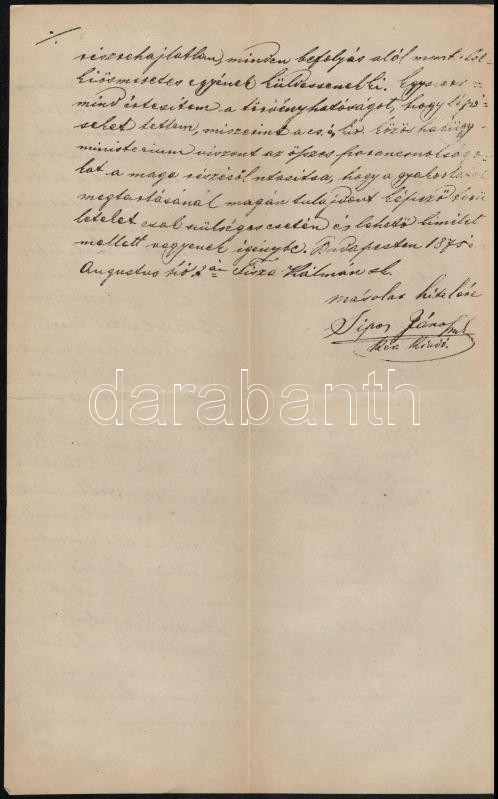 részrehajlatlan, minden befolyás alól ment
kiismeretes egyének küldessenek ki. Egyszers
mind értesitem a törvényhatóságot, hogy lépé
seket tettem, miszerint a cs. és kir. közös hadügy-
ministerium viszont az összes parancsnokságo
kat a maga részéről utasitsa, hogy a gyakorlatok
megtartásánál magán tulajdont képező terü
letek csak szükség esetén és lehető kimélet
mellett vegyenek igénybe. Budapesten 1875
Augustus hó 2án Tisza Kálmán sk.
másolat hiteléül
Sipos János mk
kiadó.
darabanth